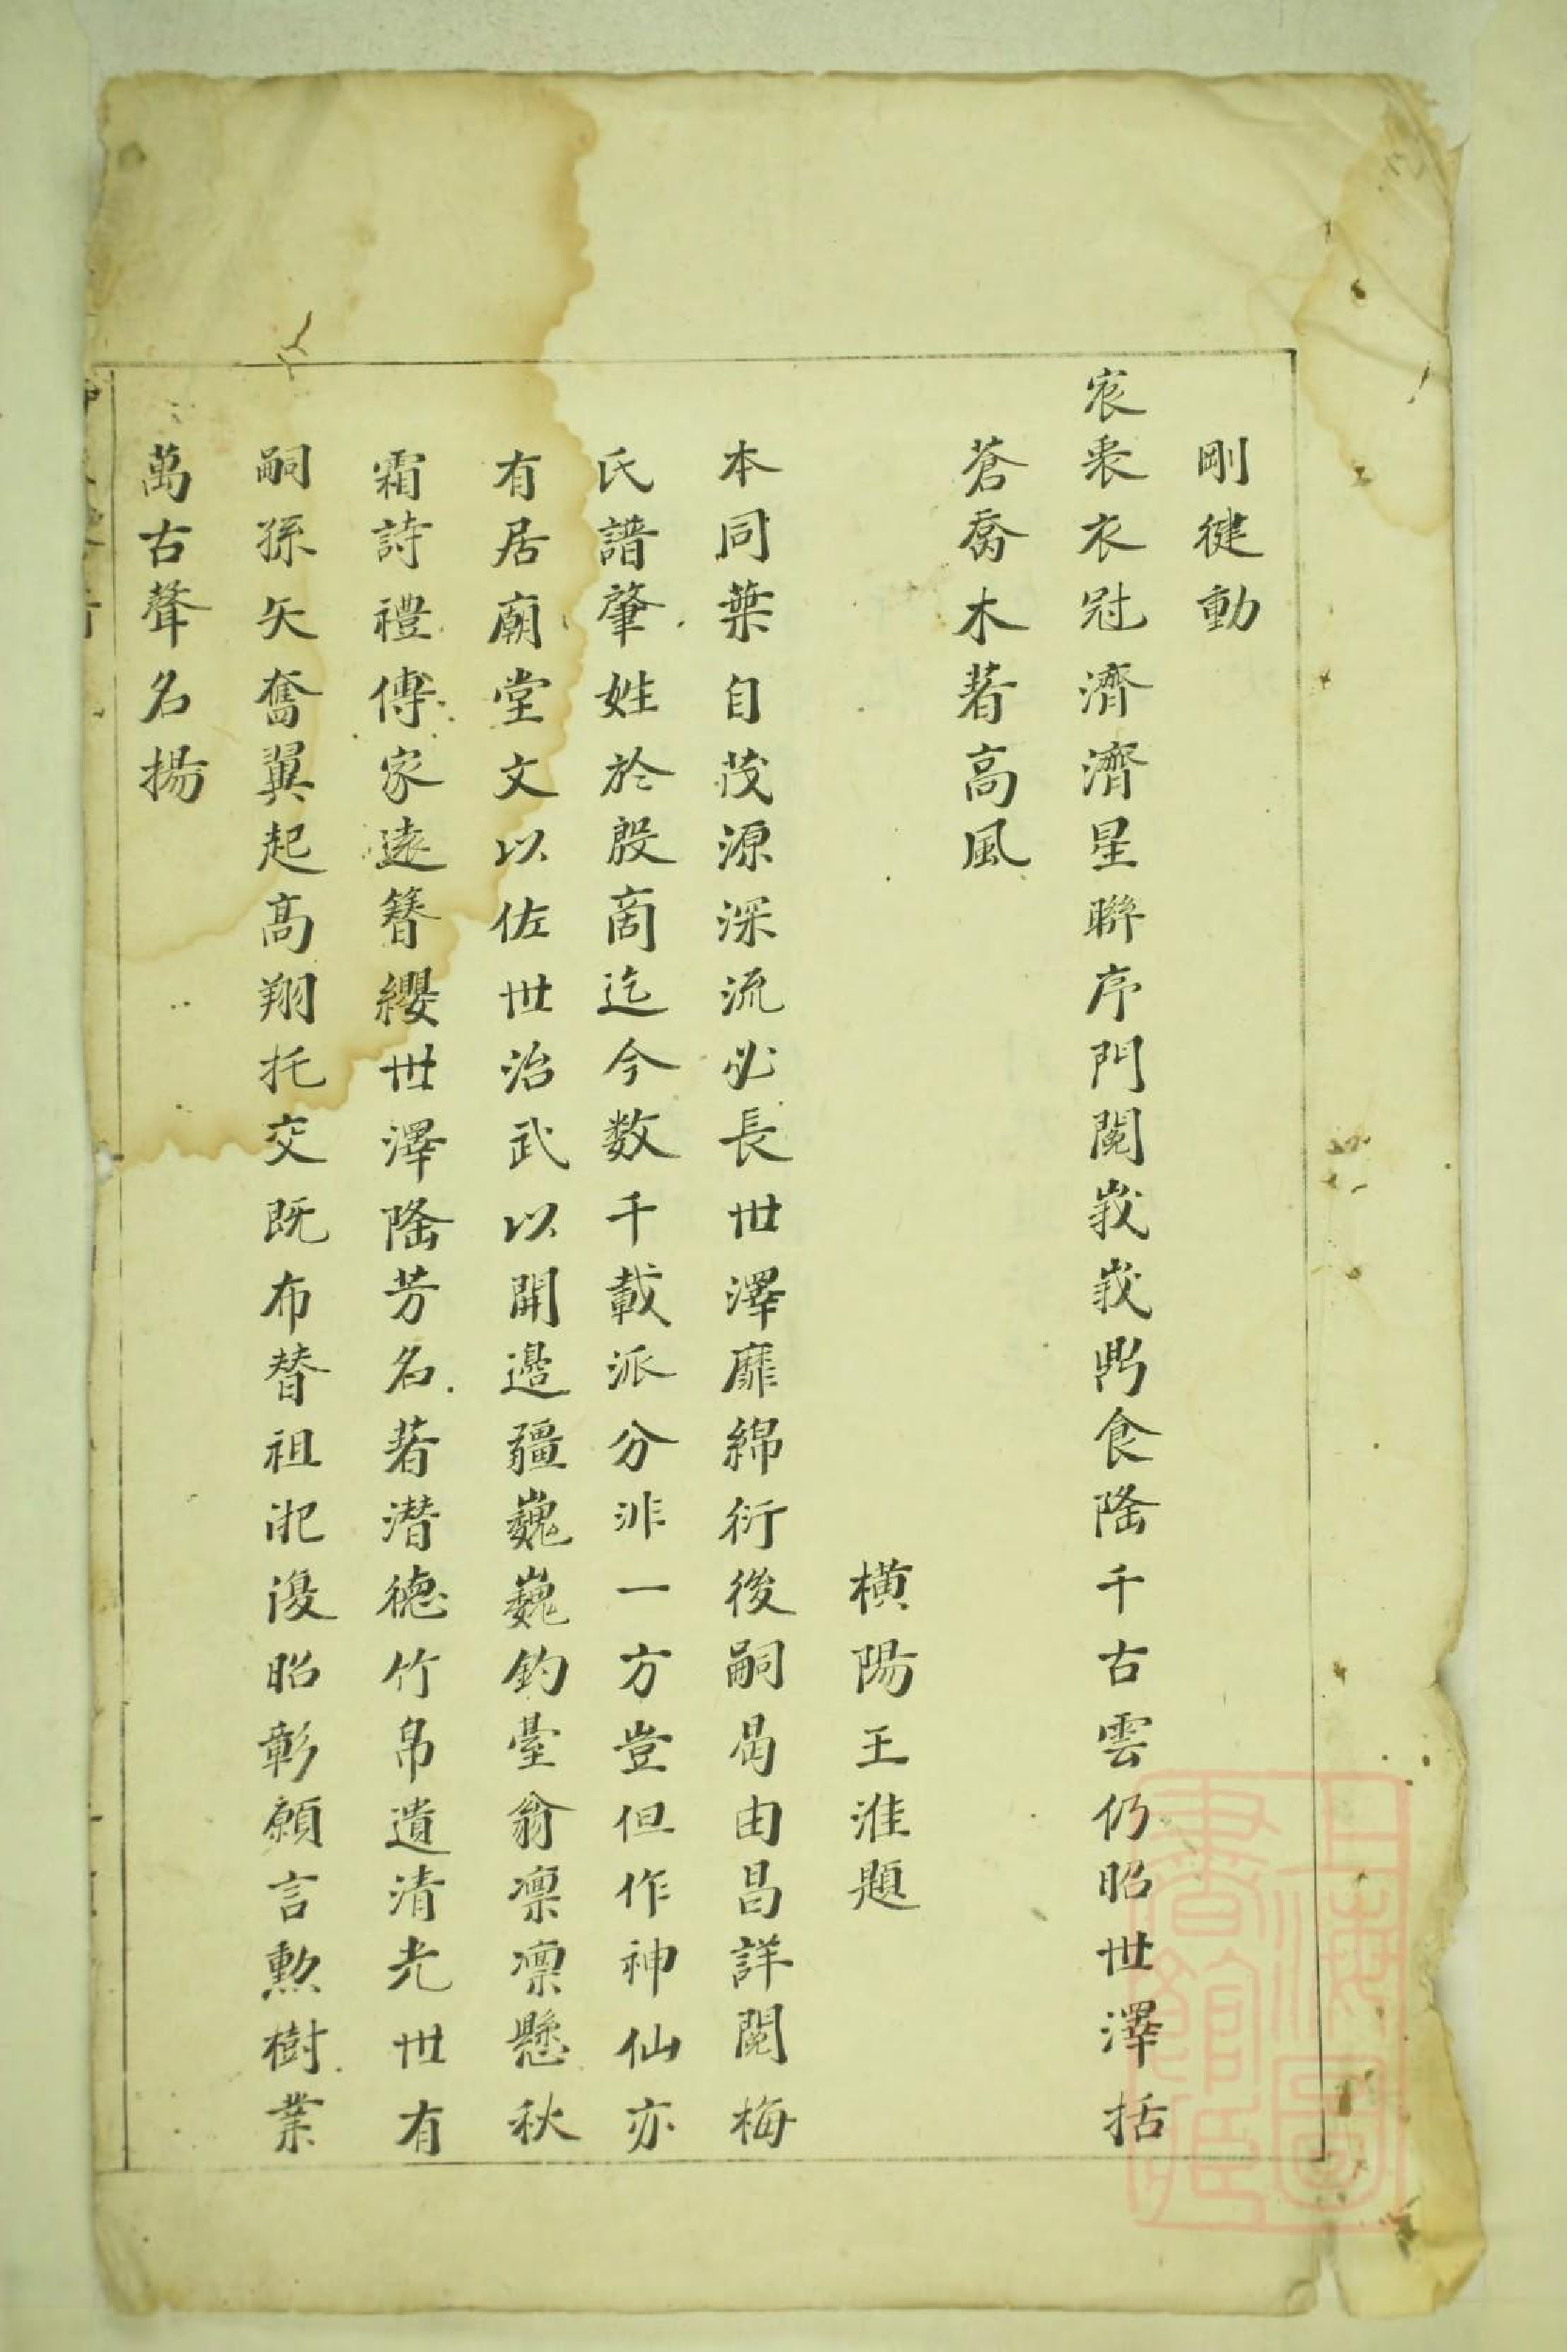 剛健動
宸裘衣冠濟濟星聯序門閥峩峩鼎食隆千古雲仍昭世澤括
蒼喬木著高風
橫陽王淮題
本同葉自茂源深流必長世澤靡綿衍後嗣曷由昌詳閱梅
氏譜肇姓於殷商迄今数千載派分非一方豈但作神仙亦
有居廟堂文以佐世治武以開邉疆巍巍釣臺翁凛凛懸秋
霜詩禮傳家遠簪纓世澤隆芳名著潜德竹帛遺清光世有
嗣孫矢奮翼起高翔托交既布替祖汜復昭彰願言勲樹業
萬古聲名揚
上海圖書館藏